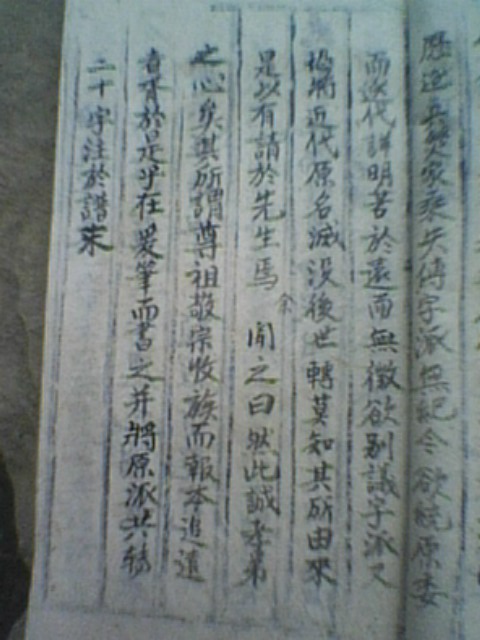 歷遊兵燹家乘失傳字派無紀今欲統原委
而近代詳明苦於遠而無徵欲別議字派又
恐將近代原名滅没後世轉莫知其所由來
是以有請於先生焉余聞之曰然此誠孝弟
之心矣其所謂尊祖敬宗收族而報本追遠
者胥於是乎在爰筆而書之并將原派共
二十字注於譜末